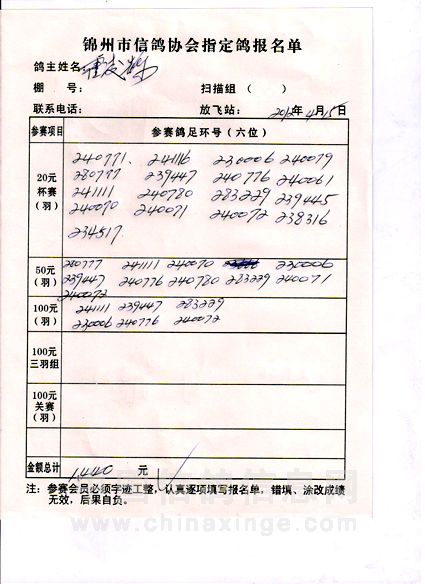 锦州市信鸽协会指定鸽报名单
鸽主姓名:
棚 号: 扫描组 ( )
联系电话: 放飞站: 2012年4月15日
参赛项目 参赛鸽足环号(六位)
240771. 241116 230006 240079
20元 280777 239447 240776 240061
杯赛 241111 240780 283229 239445
(羽) 240070 240071 240072 238316
234517.
50元 280777 241111 240070 230006
(羽) 239447 240776 240780 283229 240071
240072
100元 241111 239447 283229
(羽) 230006 240776 240072
100元
三羽组
100元
关赛
(羽)
金额总计 1440 元
注: 参赛会员必须字迹工整,认真逐项填写报名单,错填、涂改成绩
无效,后果自负。
中国信鸽信息网
www.chinaxinge.com